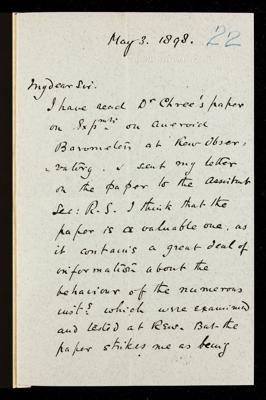 May 3. 1898.
22
My dear Sir.
I have read Dr Chree's paper
on Expmts on Aneroid
Barometers at Kew Obser:
:vatory. & sent my letter
on the paper to the assistant
Sec: R.S. I think that the
paper is a valuable one, as
it contains a great deal of
information about the
behaviour of the numerous
insts which were examined
and tested at Kew. But the
paper strikes me as being